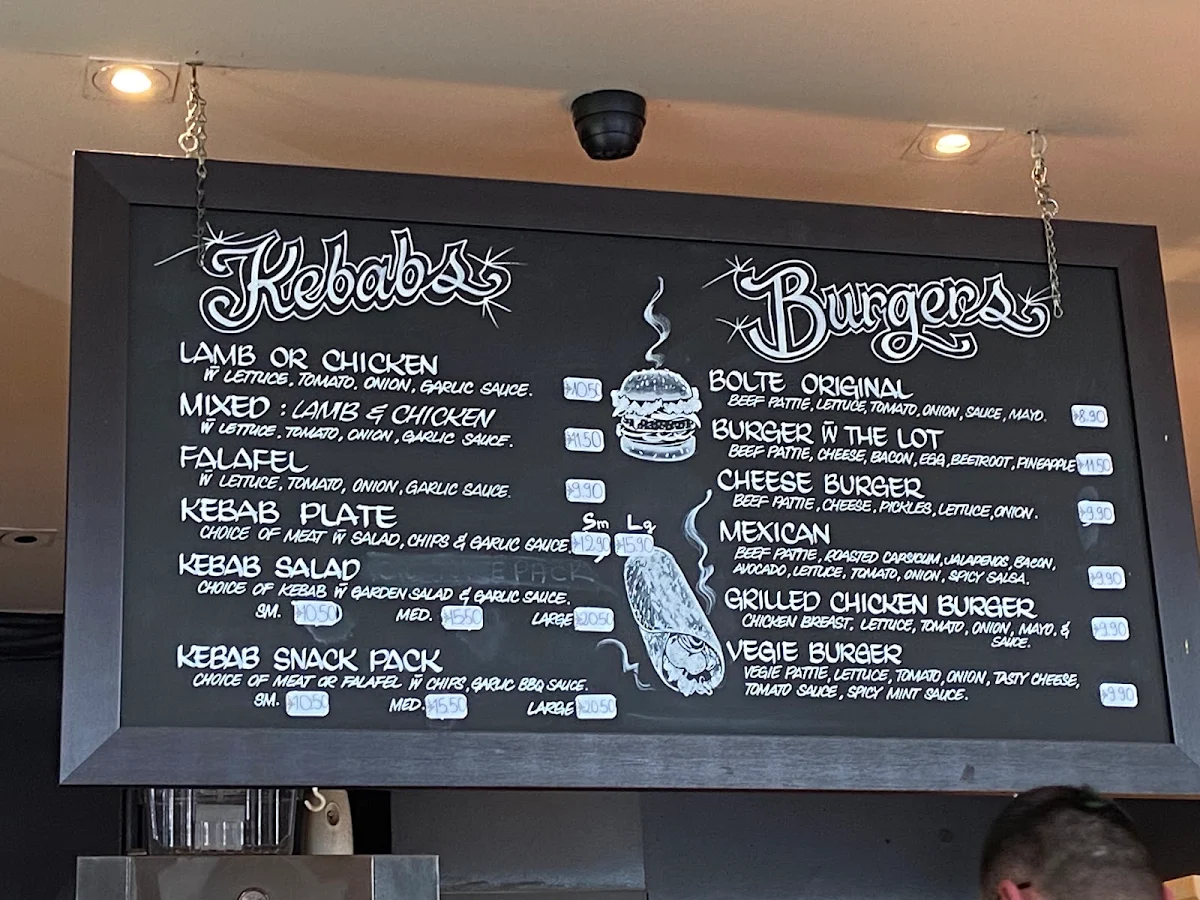 Kebabs
LAMB OR CHICKEN
W̄ LETTUCE, TOMATO, ONION, GARLIC SAUCE. $10.50
MIXED : LAMB & CHICKEN
W̄ LETTUCE, TOMATO, ONION, GARLIC SAUCE. $11.50
FALAFEL
W̄ LETTUCE, TOMATO, ONION, GARLIC SAUCE. $9.90
KEBAB PLATE Sm Lg
CHOICE OF MEAT W̄ SALAD, CHIPS & GARLIC SAUCE $12.90 $15.90
KEBAB SALAD
CHOICE OF KEBAB W̄ GARDEN SALAD & GARLIC SAUCE.
SM. $10.50 MED. $15.50 LARGE $20.50
KEBAB SNACK PACK
CHOICE OF MEAT OR FALAFEL W̄ CHIPS, GARLIC BBQ SAUCE.
SM. $10.50 MED. $15.50 LARGE $20.50
Burgers
BOLTE ORIGINAL
BEEF PATTIE, LETTUCE, TOMATO, ONION, SAUCE, MAYO. $8.90
BURGER W̄ THE LOT
BEEF PATTIE, CHEESE, BACON, EGG, BEETROOT, PINEAPPLE $11.50
CHEESE BURGER
BEEF PATTIE, CHEESE, PICKLES, LETTUCE, ONION. $9.90
MEXICAN
BEEF PATTIE, ROASTED CAPSICUM, JALAPENOS, BACON,
AVOCADO, LETTUCE, TOMATO, ONION, SPICY SALSA. $9.90
GRILLED CHICKEN BURGER
CHICKEN BREAST, LETTUCE, TOMATO, ONION, MAYO, & $9.90
SAUCE.
VEGIE BURGER
VEGIE PATTIE, LETTUCE, TOMATO, ONION, TASTY CHEESE,
TOMATO SAUCE, SPICY MINT SAUCE. $9.90